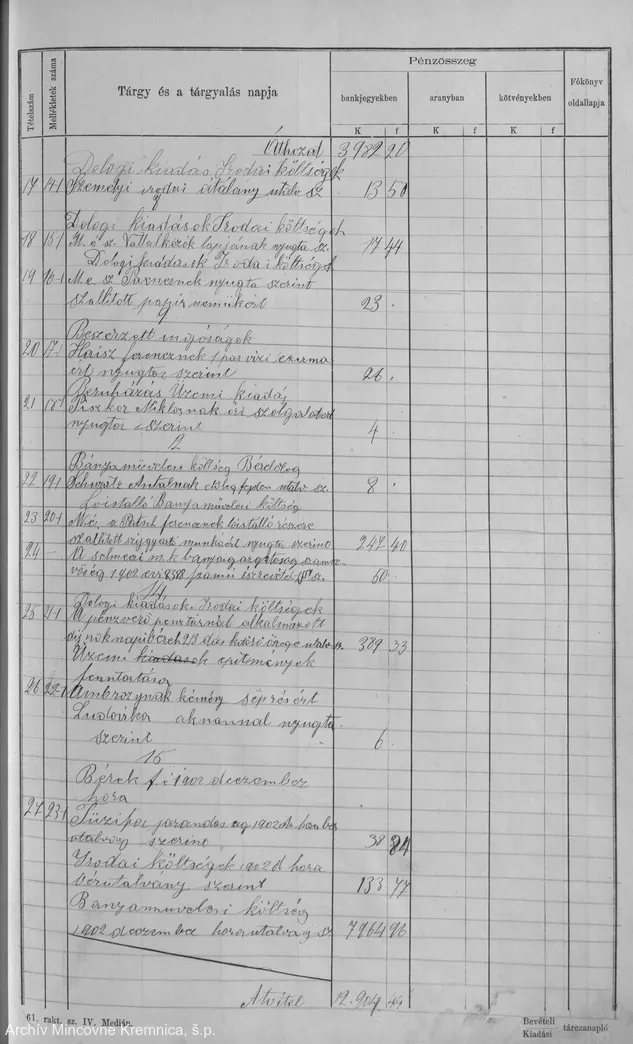 Pénzösszeg
Tételszám
Mellékletek száma
Tárgy és a tárgyalás napja
bankjegyekben
aranyban
kötvényekben
Főkönyv
oldallapja
K f K f K f
Áthozat 3982 20
Dologi kiadás Irodai költségek
17 14/1 Személyi irodai átalány utalv sz 13 50
Dologi kiadások Irodai költségek
18 15/1 M. é sz. Vállalkozók lapjának nyugta sz. 17 44
Dologi kiadások Irodai költségek
19 16/1 M. e. sz nyugta szerint
szállított papírneműkért 23 .
Beszerzett ingóságok
20 17/1 Haisz ferencznek 1 par vizi czizma
ért nyugta szerint 26 .
Beruházás Üzemi kiadás
21 18/1 Piszkor Miklósnak őri szolgálatért
nyugta szerint 4
12
Bányaművelesi költség Bérdolog
22 19/1 Schwartz Antalnak utalv sz. 8 .
Lóistalló Banyamüvelesi költség
23 20/1 M. é. s Patsch ferencznek lóistalló részére
szállitott szijgyártó munkáért nyugta szerint 247 40
24 – A selmeczi m. k. banyaigazgatosag szamve
vöség 1902 evi 838 számú észrevétel sz. 60 .
14
Dologi kiadások. Irodai költségek
25 21/1 A pénzverö penztarnál alkalmazott
dijnok napibéreh utalv sz. 389 33
Üzemi kiadások epitmények
fenntartása
26 22/1 Ambrozynak kémény séprésért
Ludovika aknannal nyugta
szerint 6
15
Bérek f. é. 1902 deczember
hora
27 23/1 Tüzifa jarandosag 1902 dec hora ber
utalvány szerint 38 84
Irodai költségek 1902 d hora
bérutalvány szerint 133 77
Banyamüvelesi költség
1902 deczember hora utalvag sz 7964 96
Átvitel 12.904 44
61. rakt. sz. IV. Medián.
Bevételi
Kiadási tárczanapló
Archív Mincovne Kremnica, š.p.